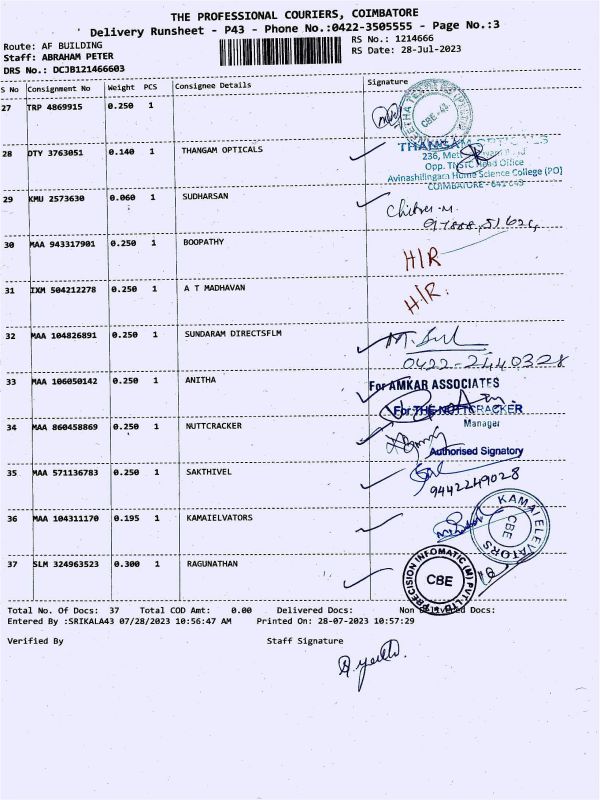 THE PROFESSIONAL COURIERS, COIMBATORE
Delivery Runsheet - P43 - Phone No.:0422-3505555 - Page No.:3
Route: AF BUILDING
RS No.: 1214666
Staff: ABRAHAM PETER
RS Date: 28-Jul-2023
DRS No.: DCJB121466603
S No Consignment No Weight PCS Consignee Details Signature
27 TRP 4869915 0.250 1
CBE-43
28 DTY 3763051 0.140 1 THANGAM OPTICALS
THANGAM
236,
Opp. Head Office
Avinashilingam Home Science College (PO)
COIMBATORE - 641 043
29 KMU 2573630 0.060 1 SUDHARSAN
30 MAA 943317901 0.250 1 BOOPATHY
H/R
31 IXM 504212278 0.250 1 A T MADHAVAN
H/R.
32 MAA 104826891 0.250 1 SUNDARAM DIRECTSFLM
0422-2440328
33 MAA 106050142 0.250 1 ANITHA
For AMKAR ASSOCIATES
For THE NUTTCRACKER
34 MAA 860458869 0.250 1 NUTTCRACKER
Manager
Authorised Signatory
35 MAA 571136783 0.250 1 SAKTHIVEL
9442249028
36 MAA 104311170 0.195 1 KAMAIELVATORS
KAMAI ELEVATORS
CBE
37 SLM 324963523 0.300 1 RAGUNATHAN
PRECISION INFOMATIC (M) PVT LTD
CBE
Total No. Of Docs: 37 Total COD Amt: 0.00 Delivered Docs: Non Delivered Docs:
Entered By :SRIKALA43 07/28/2023 10:56:47 AM Printed On: 28-07-2023 10:57:29
Verified By Staff Signature